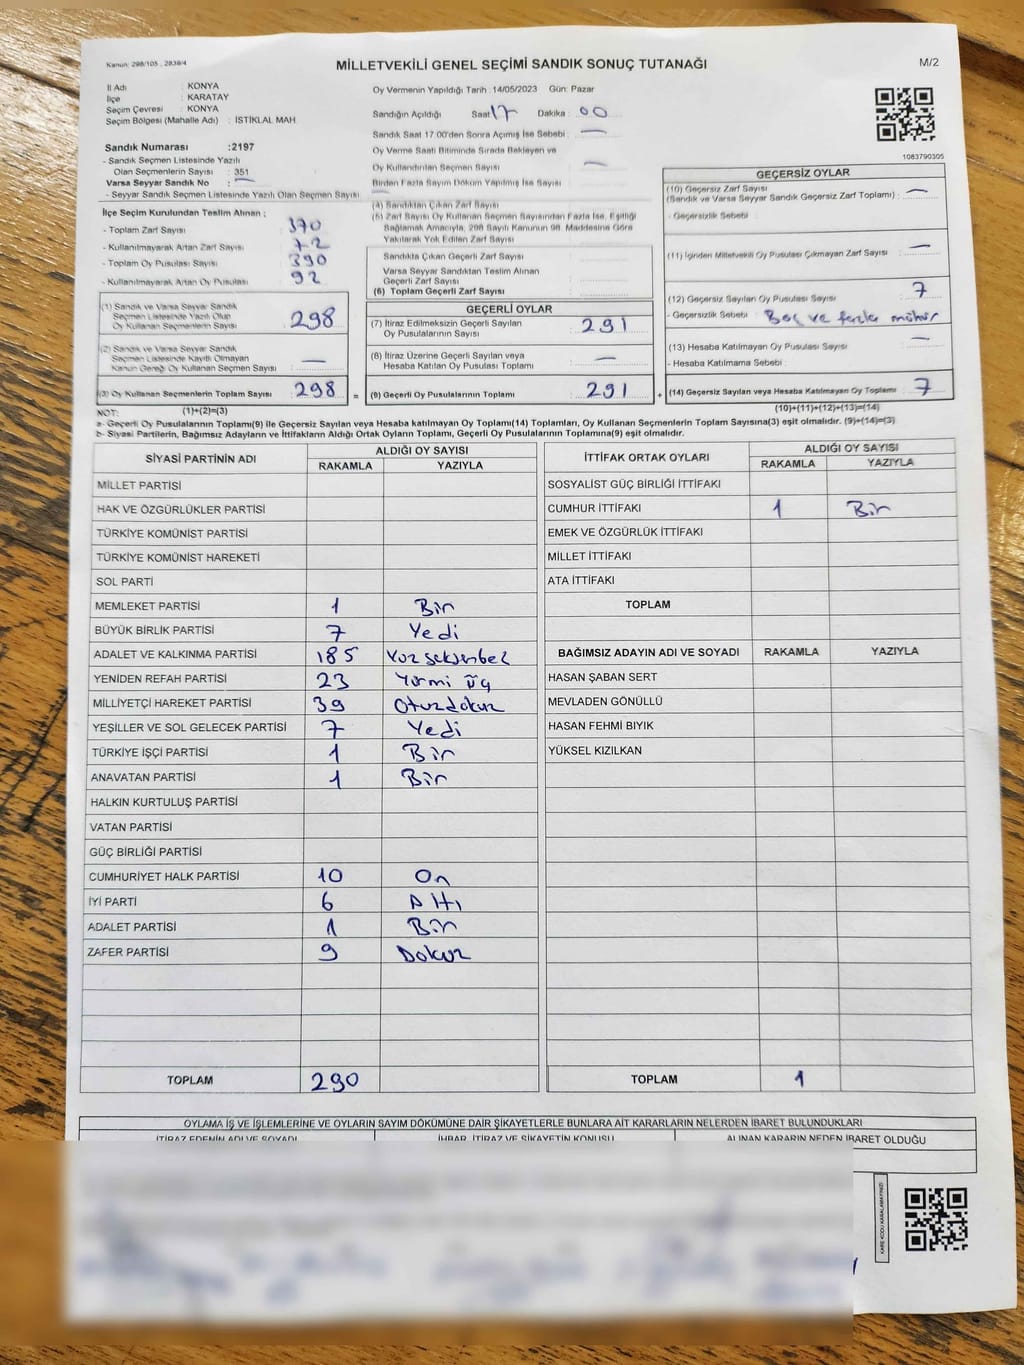 Kanun: 298/105 , 2839/4
MİLLETVEKİLİ GENEL SEÇİMİ SANDIK SONUÇ TUTANAĞI
M/2
İl Adı : KONYA
İlçe : KARATAY
Seçim Çevresi : KONYA
Seçim Bölgesi (Mahalle Adı) : İSTİKLAL MAH
Sandık Numarası :2197
- Sandık Seçmen Listesinde Yazılı
Olan Seçmenlerin Sayısı : 351
Varsa Seyyar Sandık No : —
- Seyyar Sandık Seçmen Listesinde Yazılı Olan Seçmen Sayısı
İlçe Seçim Kurulundan Teslim Alınan :
- Toplam Zarf Sayısı : 370
- Kullanılmayarak Artan Zarf Sayısı : 72
- Toplam Oy Pusulası Sayısı : 390
- Kullanılmayarak Artan Oy Pusulası : 92
(1) Sandık ve Varsa Seyyar Sandık
Seçmen Listesinde Yazılı Olup
Oy Kullanan Seçmenlerin Sayısı : 298
(2) Sandık ve Varsa Seyyar Sandık
Seçmen Listesinde Kayıtlı Olmayan
Kanun Gereği Oy Kullanan Seçmen Sayısı : —
(3) Oy Kullanan Seçmenlerin Toplam Sayısı : 298 =
Oy Vermenin Yapıldığı Tarih : 14/05/2023 Gün: Pazar
Sandığın Açıldığı Saat 17 Dakika : 00
Sandık Saat 17.00'den Sonra Açımış İse Sebebi : —
Oy Verme Saati Bitiminde Sırada Bekleyen ve
Oy Kullandırılan Seçmen Sayısı : —
Birden Fazla Sayım Döküm Yapılmış İse Sayısı
(4) Sandıktan Çıkan Zarf Sayısı
(5) Zarf Sayısı Oy Kullanan Seçmen Sayısından Fazla İse, Eşitliği
Sağlamak Amacıyla, 298 Sayılı Kanunun 98. Maddesine Göre
Yakılarak Yok Edilen Zarf Sayısı
Sandıkta Çıkan Geçerli Zarf Sayısı
Varsa Seyyar Sandıktan Teslim Alınan
Geçerli Zarf Sayısı
(6) Toplam Geçerli Zarf Sayısı
GEÇERLİ OYLAR
(7) İtiraz Edilmeksizin Geçerli Sayılan
Oy Pusulalarının Sayısı : 291
(8) İtiraz Üzerine Geçerli Sayılan veya
Hesaba Katılan Oy Pusulası Toplamı : —
(9) Geçerli Oy Pusulalarının Toplamı : 291 +
1083790305
GEÇERSİZ OYLAR
(10) Geçersiz Zarf Sayısı
(Sandık ve Varsa Seyyar Sandık Geçersiz Zarf Toplamı) : —
- Geçersizlik Sebebi :
(11) İçinden Milletvekili Oy Pusulası Çıkmayan Zarf Sayısı : —
(12) Geçersiz Sayılan Oy Pusulası Sayısı : 7
- Geçersizlik Sebebi : Boş ve fazla mühür
(13) Hesaba Katılmayan Oy Pusulası Sayısı : —
- Hesaba Katılmama Sebebi :
(14) Geçersiz Sayılan veya Hesaba Katılmayan Oy Toplamı : 7
NOT: (1)+(2)=(3) (10)+(11)+(12)+(13)=(14)
a- Geçerli Oy Pusulalarının Toplamı(9) ile Geçersiz Sayılan veya Hesaba katılmayan Oy Toplamı(14) Toplamları, Oy Kullanan Seçmenlerin Toplam Sayısına(3) eşit olmalıdır. (9)+(14)=(3)
b- Siyasi Partilerin, Bağımsız Adayların ve İttifakların Aldığı Ortak Oyların Toplamı, Geçerli Oy Pusulalarının Toplamına(9) eşit olmalıdır.
SİYASİ PARTİNİN ADI ALDIĞI OY SAYISI
RAKAMLA YAZIYLA
MİLLET PARTİSİ
HAK VE ÖZGÜRLÜKLER PARTİSİ
TÜRKİYE KOMÜNİST PARTİSİ
TÜRKİYE KOMÜNİST HAREKETİ
SOL PARTİ
MEMLEKET PARTİSİ 1 Bir
BÜYÜK BİRLİK PARTİSİ 7 Yedi
ADALET VE KALKINMA PARTİSİ 185 Yüzseksenbeş
YENİDEN REFAH PARTİSİ 23 Yirmi üç
MİLLİYETÇİ HAREKET PARTİSİ 39 Otuzdokuz
YEŞİLLER VE SOL GELECEK PARTİSİ 7 Yedi
TÜRKİYE İŞÇİ PARTİSİ 1 Bir
ANAVATAN PARTİSİ 1 Bir
HALKIN KURTULUŞ PARTİSİ
VATAN PARTİSİ
GÜÇ BİRLİĞİ PARTİSİ
CUMHURİYET HALK PARTİSİ 10 On
İYİ PARTİ 6 Altı
ADALET PARTİSİ 1 Bir
ZAFER PARTİSİ 9 Dokuz
TOPLAM 290
İTTİFAK ORTAK OYLARI ALDIĞI OY SAYISI
RAKAMLA YAZIYLA
SOSYALİST GÜÇ BİRLİĞİ İTTİFAKI
CUMHUR İTTİFAKI 1 Bir
EMEK VE ÖZGÜRLÜK İTTİFAKI
MİLLET İTTİFAKI
ATA İTTİFAKI
TOPLAM
BAĞIMSIZ ADAYIN ADI VE SOYADI RAKAMLA YAZIYLA
HASAN ŞABAN SERT
MEVLADEN GÖNÜLLÜ
HASAN FEHMI BIYIK
YÜKSEL KIZILKAN
TOPLAM 1
OYLAMA İŞ VE İŞLEMLERİNE VE OYLARIN SAYIM DÖKÜMÜNE DAİR ŞİKAYETLERLE BUNLARA AİT KARARLARIN NELERDEN İBARET BULUNDUKLARI
İTİRAZ EDENİN ADI VE SOYADI İHBAR, İTİRAZ VE ŞİKAYETİN KONUSU ALINAN KARARIN NEDEN İBARET OLDUĞU
KARE KODU KARALAMAYINIZ!